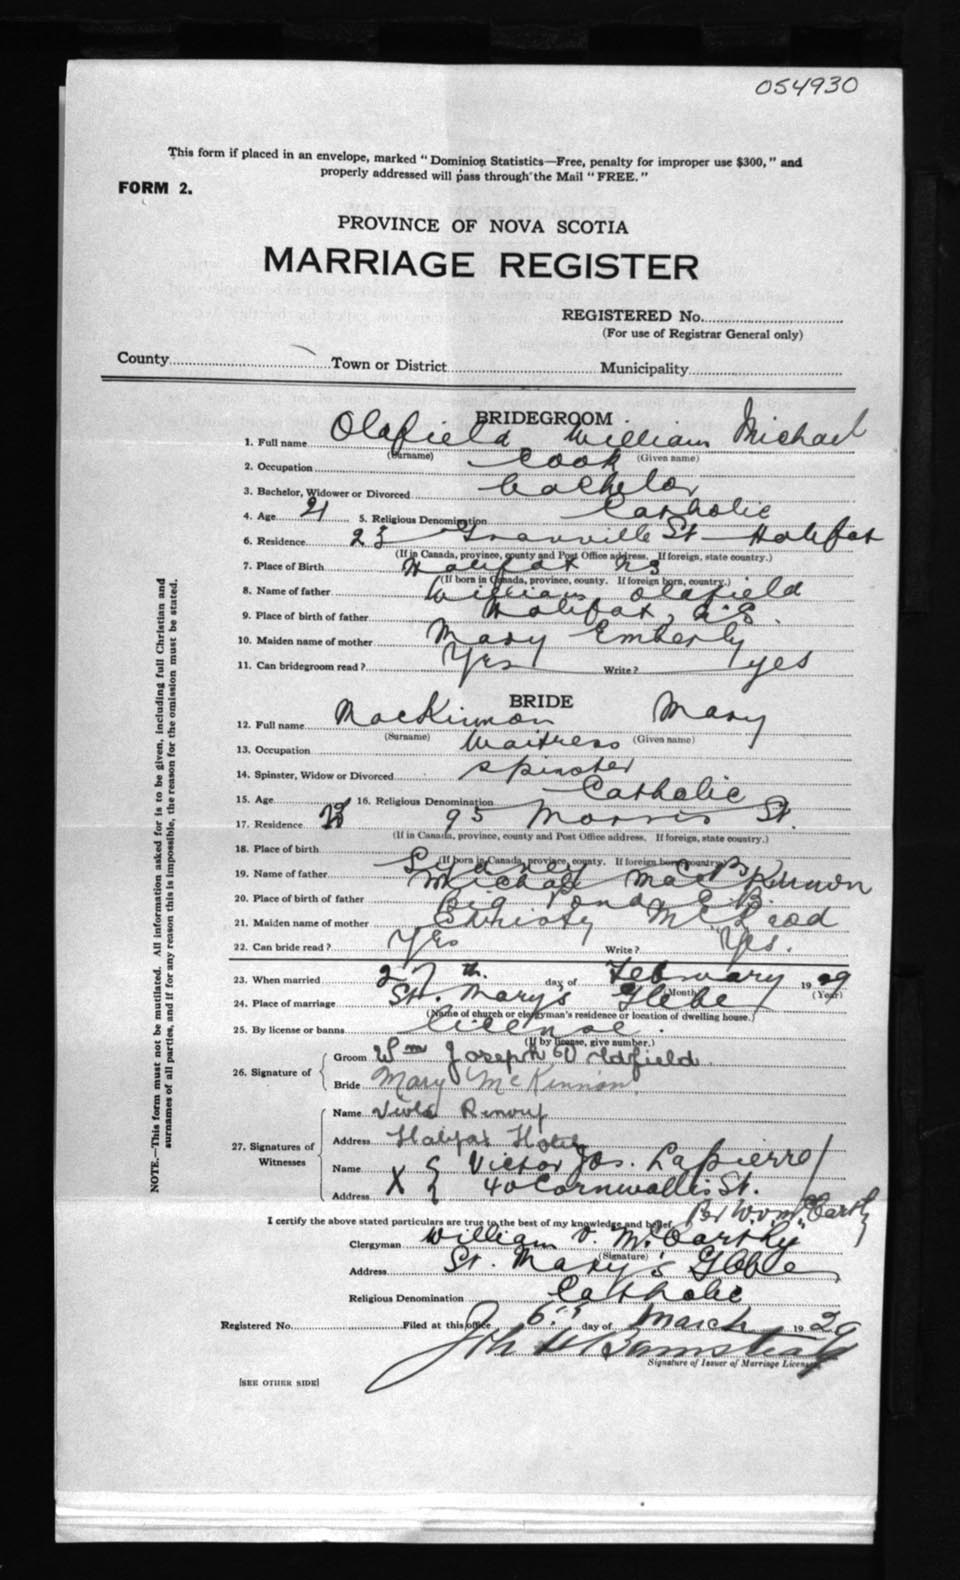 054930
This form if placed in an envelope, marked "Dominion Statistics—Free, penalty for improper use $300," and
properly addressed will pass through the Mail "FREE."
FORM 2.
PROVINCE OF NOVA SCOTIA
MARRIAGE REGISTER
REGISTERED No.
(For use of Registrar General only)
County Town or District Municipality
BRIDEGROOM
1. Full name Oldfield William Michael
(Surname) (Given name)
2. Occupation Cook
3. Bachelor, Widower or Divorced bachelor
4. Age 21 5. Religious Denomination Catholic
6. Residence 23 Granville St Halifax
(If in Canada, province, county and Post Office address. If foreign, state country.)
7. Place of Birth Halifax NS
(If born in Canada, province, county. If foreign born, country.)
8. Name of father William Oldfield
9. Place of birth of father Halifax, N.S.
10. Maiden name of mother Mary Emberly
11. Can bridegroom read? Yes Write? yes
BRIDE
12. Full name MacKinnon Mary
(Surname) (Given name)
13. Occupation Waitress
14. Spinster, Widow or Divorced spinster
15. Age 16. Religious Denomination Catholic
17. Residence 95 Morris St.
(If in Canada, province, county and Post Office address. If foreign, state country.)
18. Place of birth Sydney C B
(If born in Canada, province, county. If foreign born, country.)
19. Name of father Michael MacKinnon
20. Place of birth of father Big Pond C.B.
21. Maiden name of mother Christy McLeod
22. Can bride read? Yes Write? Yes.
23. When married 27th. day of February 1929
(Month) (Year)
24. Place of marriage St. Mary's Glebe
(Name of church or clergyman's residence or location of dwelling house.)
25. By license or banns license.
(If by license, give number.)
26. Signature of Groom Wm Joseph Oldfield.
Bride Mary McKinnon
27. Signatures of Witnesses Name Viola Renouf
Address Halifax Hotel
Name X Victor Jos. LaPierre
Address 40 Cornwallis St.
Per W.V. McCarthy
I certify the above stated particulars are true to the best of my knowledge and belief.
Clergyman William V. McCarthy
(Signature)
Address St. Mary's Glebe
Religious Denomination Catholic
Registered No. Filed at this office 6th day of March 1929
Signature of Issuer of Marriage Licenses
[SEE OTHER SIDE]
NOTE.—This form must not be mutilated. All information asked for is to be given, including full Christian and
surnames of all parties, and if for any reason this is impossible, the reason for the omission must be stated.